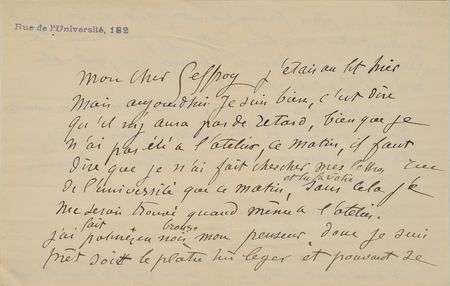 Rue de l'Université, 182
Mon cher Geffroy j'étais au lit hier
Mais aujourdhui je suis bien, c'est dire
qu'il n'y aura pas de retard, bien que je
n'ai pas été a l'atelier, ce matin, il faut
dire que je n'ai fait chercher mes lettres rue
et lu la votre
de l'université que ce matin, sans cela je
me serais trouvé quand même a l'atelier.
fait bronze
j'ai patiner en noir mon penseur, donc je suis
prêt soit le platre très leger et pouvant se